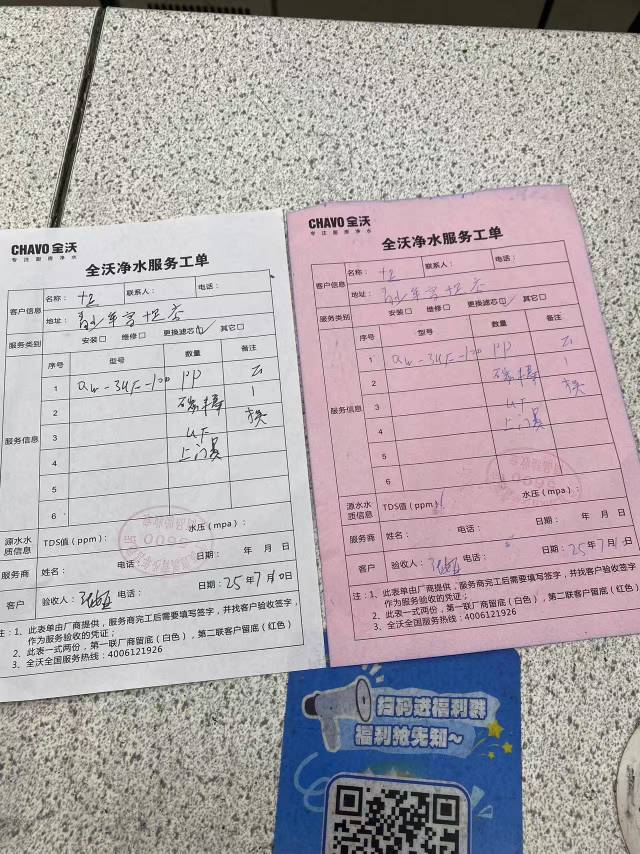 CHAVO 全沃
专注厨房净水
全沃净水服务工单
客户信息
名称：
联系人：
电话：
地址：青少年宫七巧店
服务类别
安装□ 维修□ 更换滤芯☑ 其它□
服务信息
序号 型号 数量 备注
1 QW-3UF-100 PP
2 碳棒 1
3 UF 换
4 上门费
5
6
源水水质信息
TDS值（ppm）：
水压（mpa）：
服务商
姓名：
电话：
日期： 年 月 日
客户
验收人：
电话：
日期：25年7月10日
注：1、此表单由厂商提供，服务商完工后需要填写签字，并找客户验收签字，
作为服务验收的凭证；
2、此表一式两份，第一联厂商留底（白色），第二联客户留底（红色）
3、全沃全国服务热线：4006121926
CHAVO 全沃
专注厨房净水
全沃净水服务工单
客户信息
名称：
联系人：
电话：
地址：
服务类别
安装□ 维修□ 更换滤芯☑ 其它□
服务信息
序号 型号 数量 备注
1 QW-3UF-100 PP
2 碳棒 1
3 UF 换
4 上门费
5
6
源水水质信息
TDS值（ppm）：
水压（mpa）：
服务商
姓名：
电话：
日期： 年 月 日
客户
验收人：
电话：
日期：25年7月10日
注：1、此表单由厂商提供，服务商完工后需要填写签字，并找客户验收签字，
作为服务验收的凭证；
2、此表一式两份，第一联厂商留底（白色），第二联客户留底（红色）
3、全沃全国服务热线：4006121926
扫码进福利群
福利抢先知~